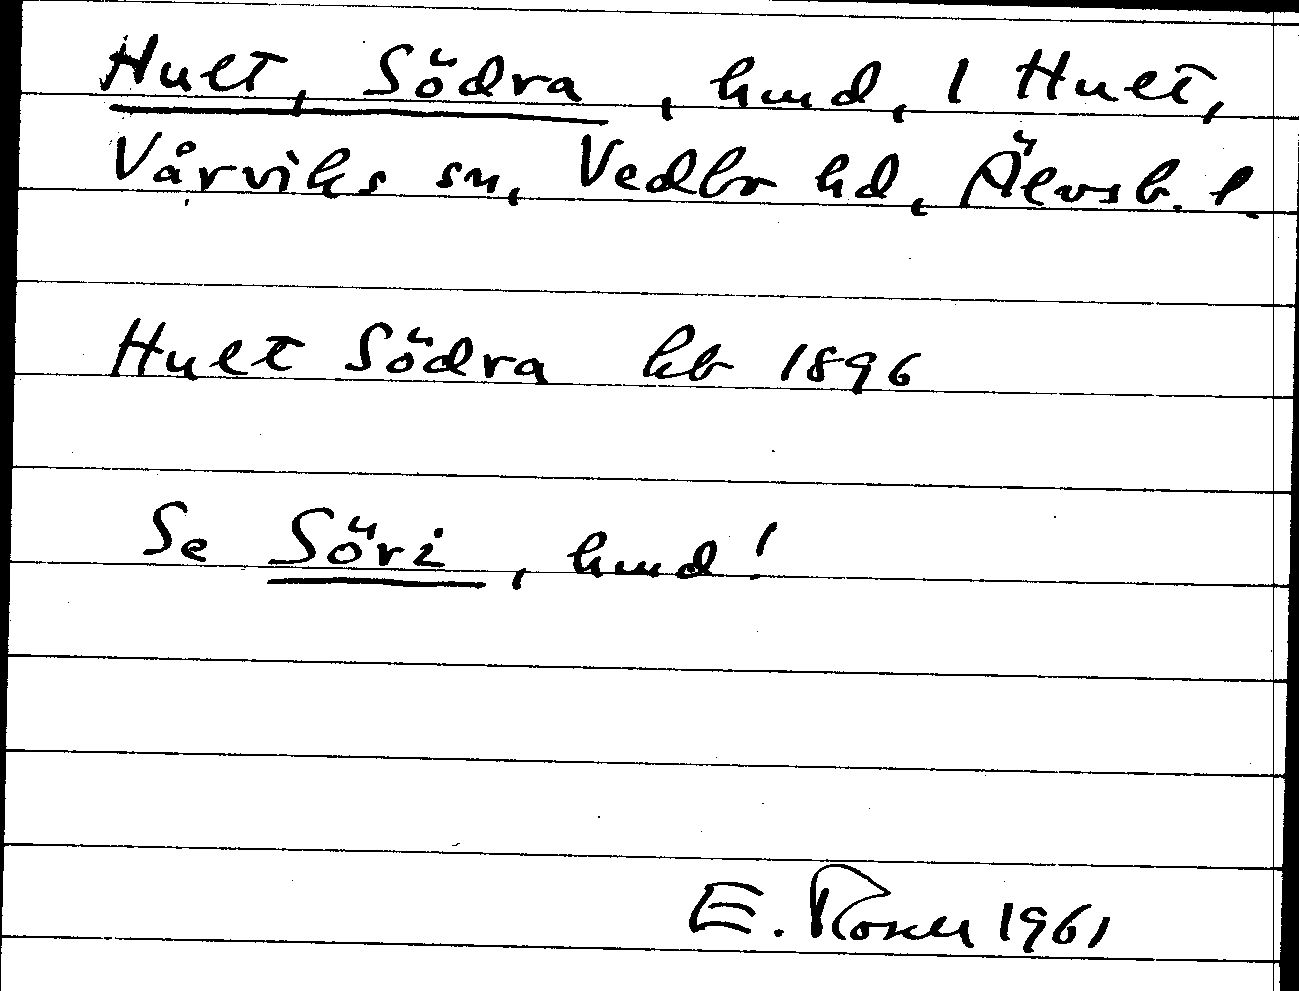 Hult, Södra, hmd, 1 Hult,
Vårviks sn, Vedbo hd, Älvsb. l.
Hult Södra kb 1896
Se Söri, hmd!
E. Rosell 1961